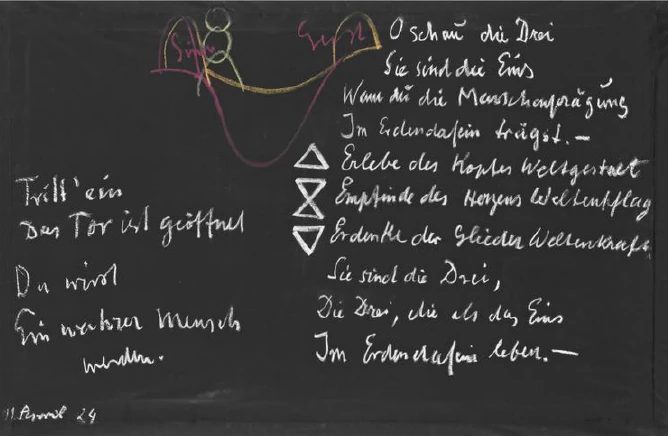 Sinn Geist
O schau die Drei
Sie sind die Eins
Wenn du die Menschenprägung
Im Erdendasein trägst.—
Erlebe des Kopfes Weltgestalt
Empfinde des Herzens Weltenschlag
Erdenke der Glieder Weltenkraft
Sie sind die Drei,
Die Drei, die als das Eins
Im Erdendasein leben.—
Tritt ein
Das Tor ist geöffnet
Du wirst
Ein wahrer Mensch
werden.
24